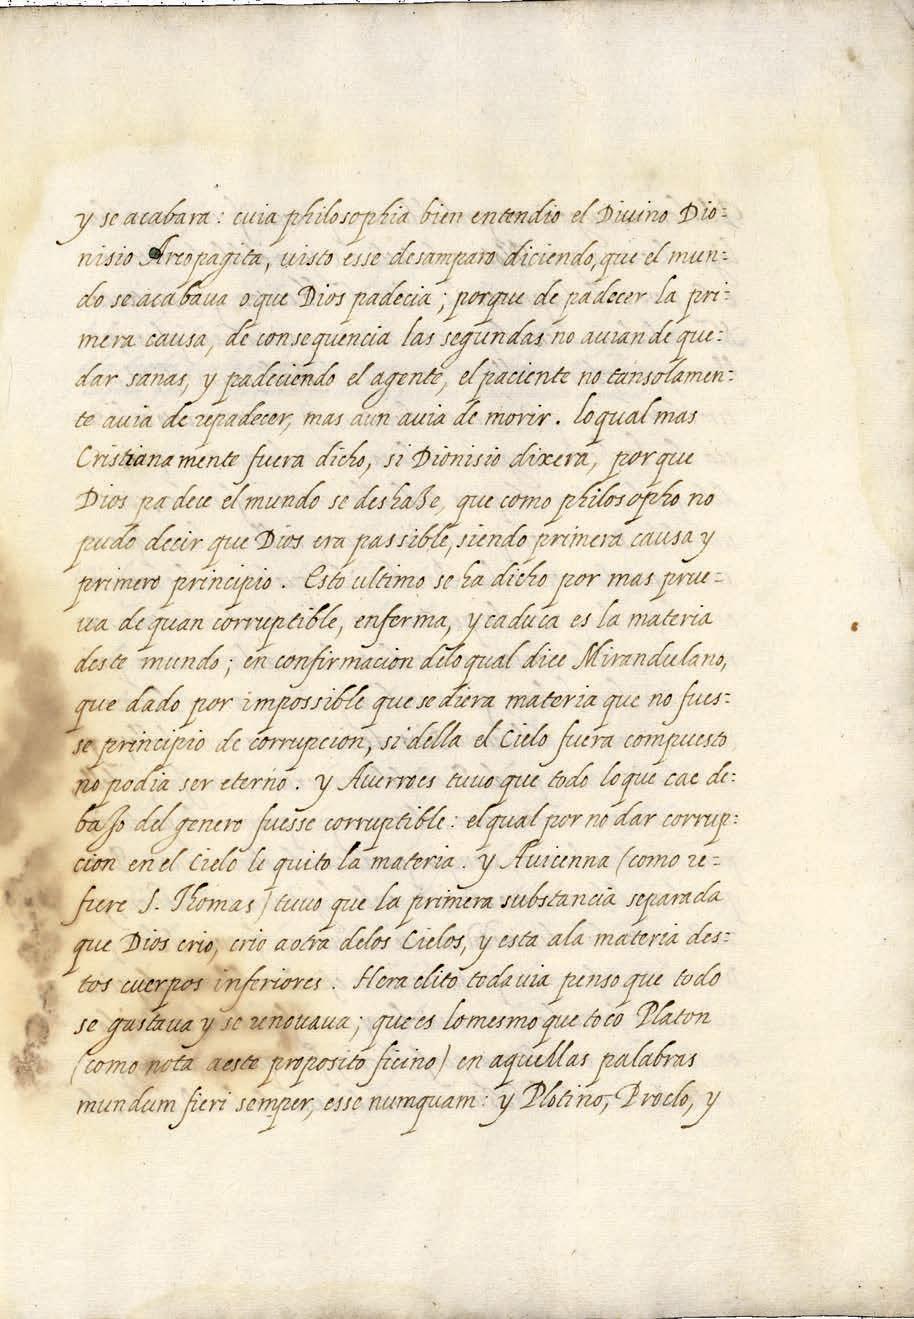 y se acabara: cuia philosophia bien entendio el Divino Dio:
nisio Areopagita, visto esse desamparo diciendo, que el mun:
do se acabava o que Dios padecia; porque de padecer la pri:
mera causa, de consequencia las segundas no avian de que:
dar sanas, y padeciendo el agente, el paciente no tansolamen:
te avia de repadecer, mas aun avia de morir. lo qual mas
Cristianamente fuera dicho, si Dionisio dixera, porque
Dios padece el mundo se deshaze, que como philosopho no
pudo decir que Dios era passible, siendo primera causa y
primero principio. Esto ultimo se ha dicho por mas prue:
va de quan corruptible, enferma, y caduca es la materia
deste mundo; en confirmacion delo qual dice Mirandulano,
que dado por impossible que se diera materia que no fues:
se principio de corrupcion, si della el Cielo fuera compuesto
no podia ser eterno. y Averroes tuvo que todo lo que cae de:
bajo del genero fuesse corruptible: el qual por no dar corrup:
cion en el Cielo le quito la materia. y Avicenna (como re:
fiere S. Thomas) tuvo que la primera substancia separada
que Dios crio, crio a otra delos Cielos, y esta ala materia des:
tos cuerpos inferiores. Heraclito todavia penso que todo
se gastava y se renovava; que es lo mesmo que toco Platon
(como nota a este proposito ficino) en aquellas palabras
mundum fieri semper, esse numquam: y Plotino, Proclo, y